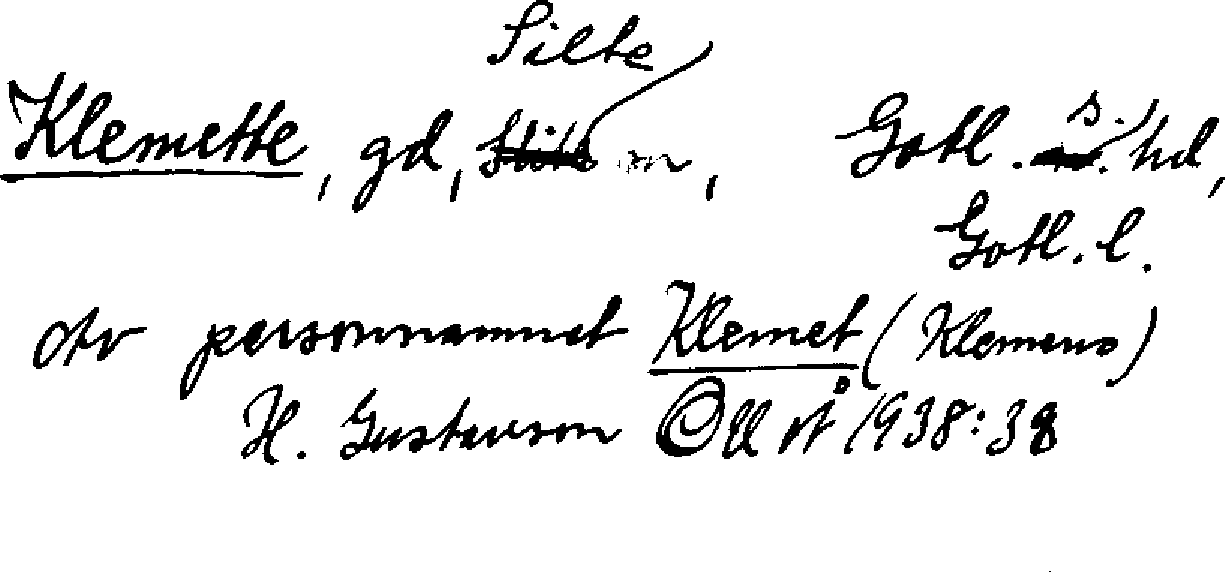 Silte
Klemette, gd, sn, Gotl. s. hd,
Gotl. l.
av personnamnet Klemet (Klemens)
H. Gustavson UUÅ 1938:38